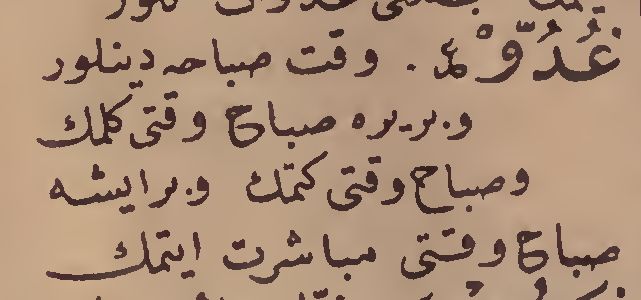 غُدُوّْ وقت صباحه دينلور
و بر يره صباح وقتى كلمك
و صباح وقتى كتمك و بر ايشه
صباح وقتى مباشرت ايتمك